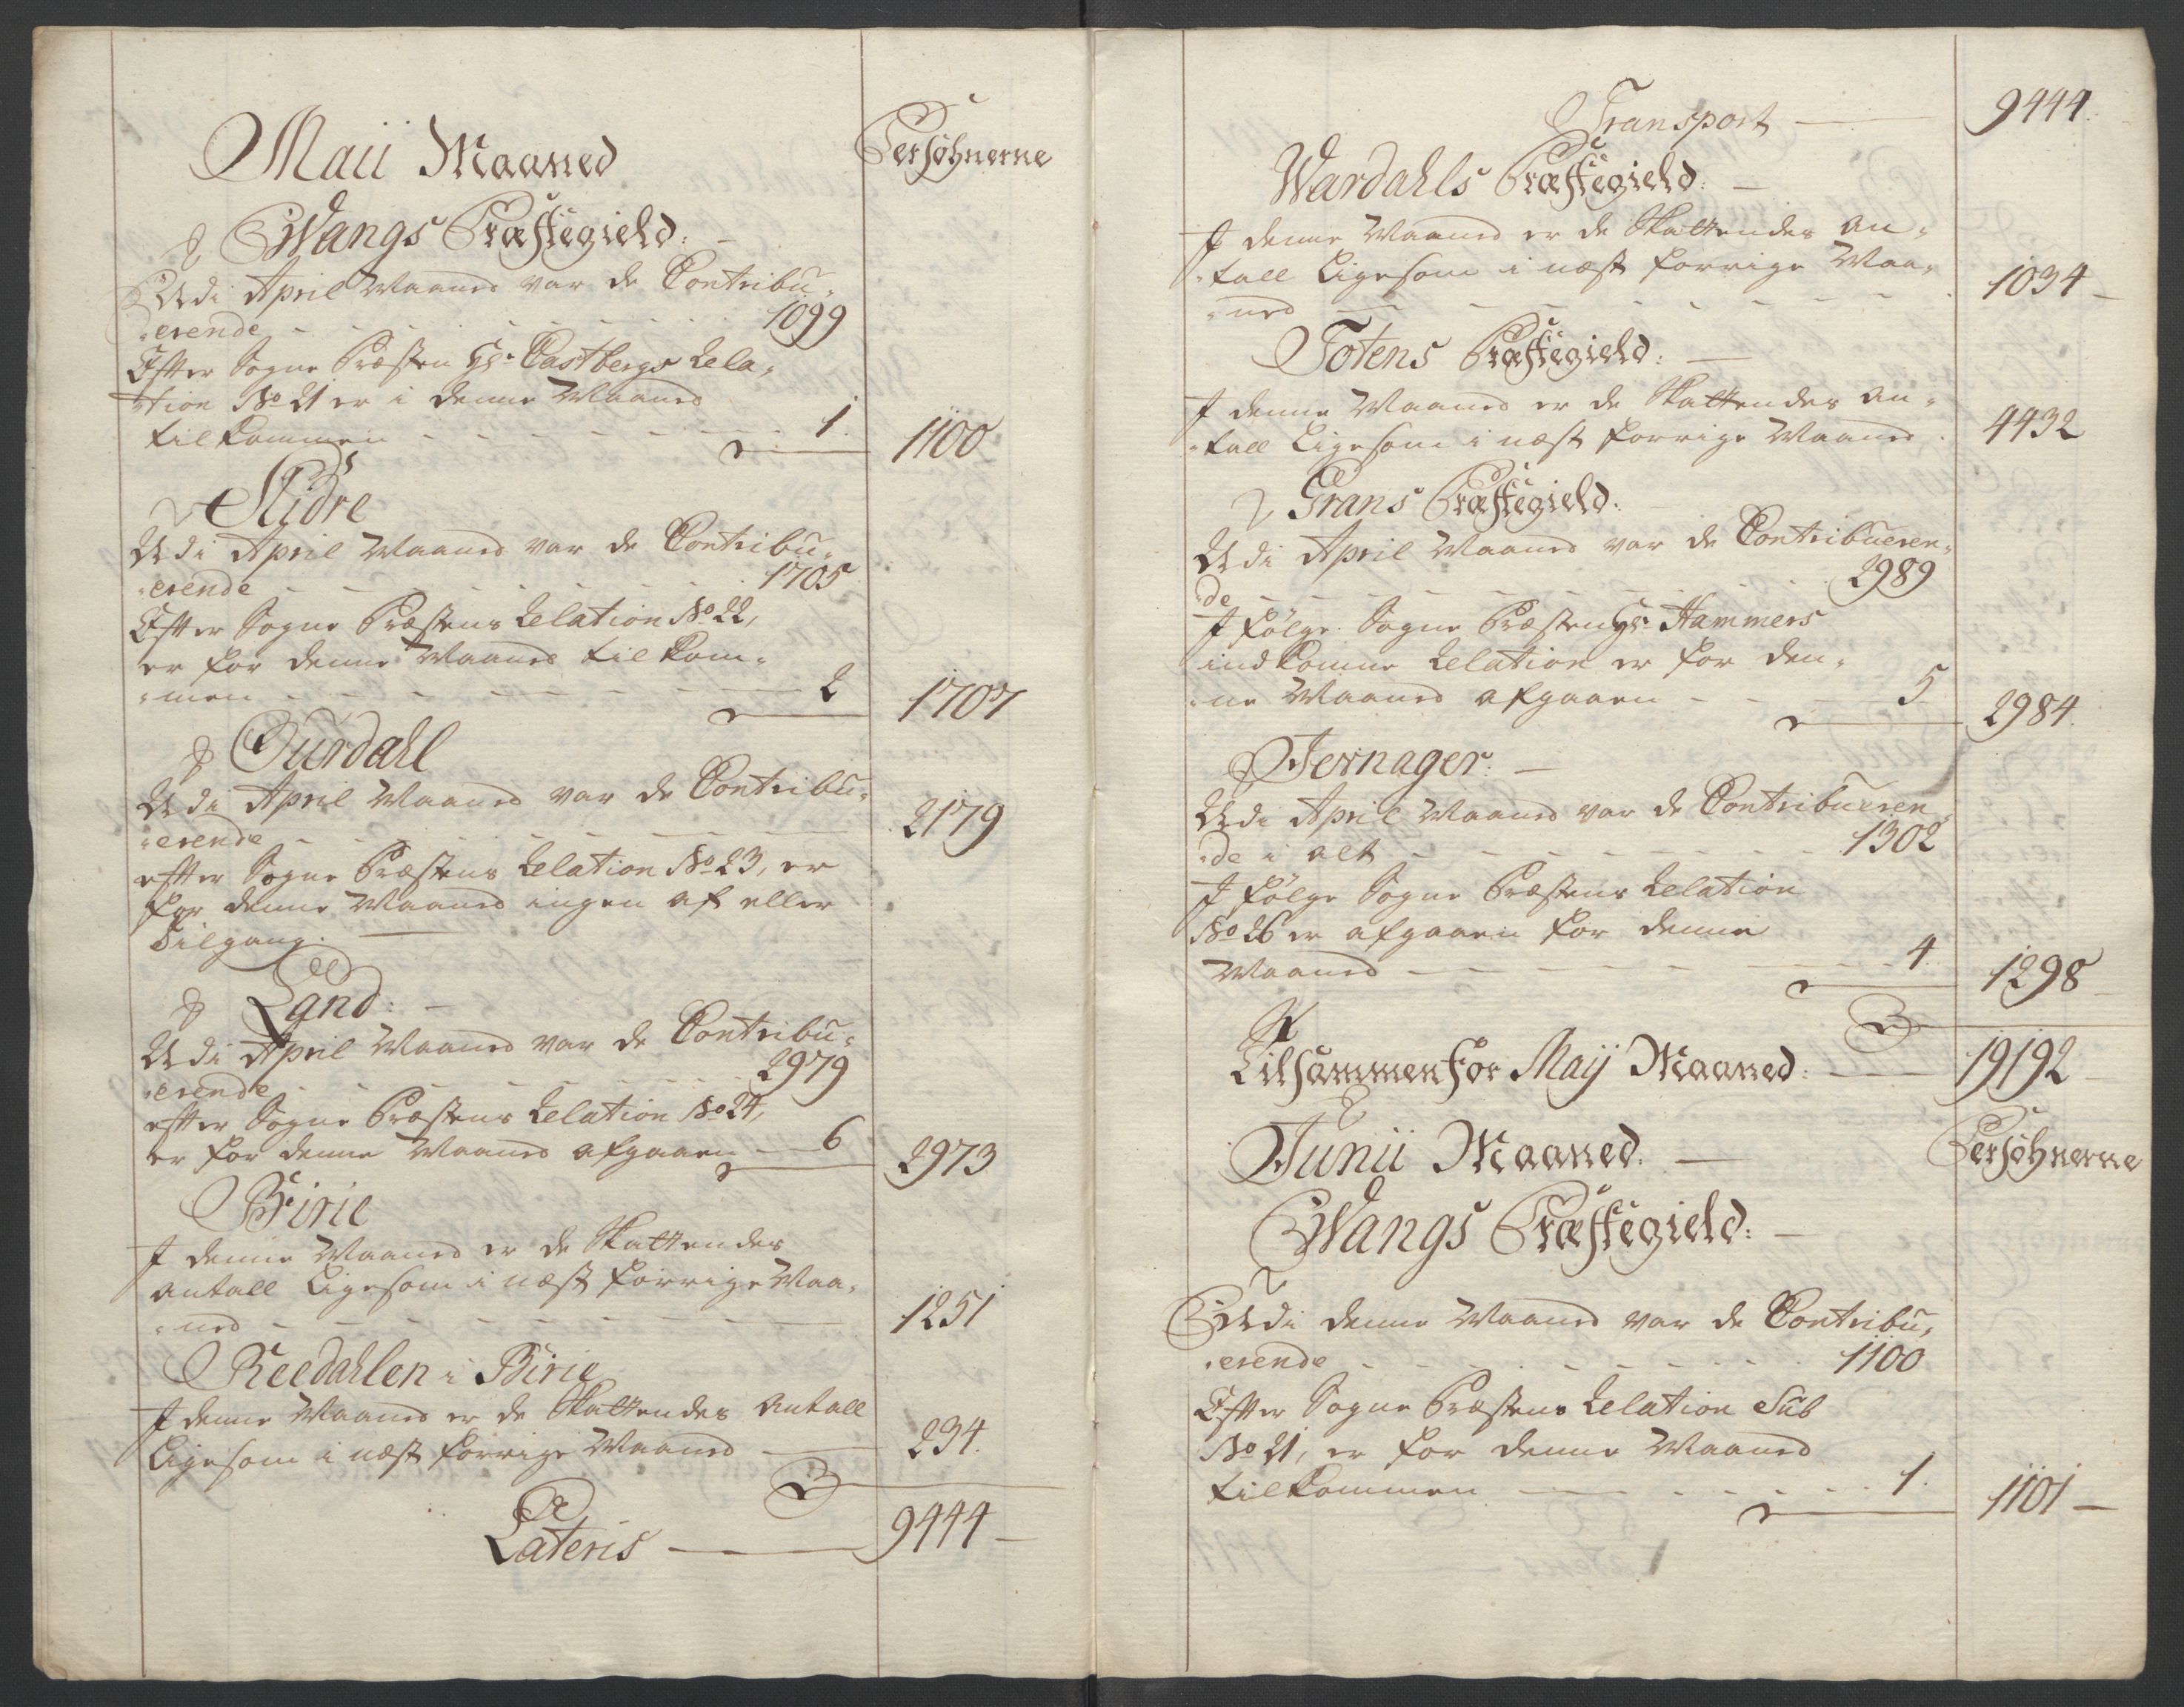 Maii Maaned
Persohnerne
Wangs Præstegield:
Udi April Maaned var de Contribu-
erende 1099
Efter Sogne Præsten Hr. Castbergs Rela-
tion No 21 er i denne Maaned
tilkommen 1. 1100
Slidre
Udi April Maaned var de Contribu-
erende 1705
Efter Sogne Præstens Relation No 22,
er for denne Maaned tilkom-
men 2 1707
Ourdahl
Udi April Maaned var de Contribu-
erende 2179
efter Sogne Præstens Relation No 23, er
for denne Maaned ingen af eller
Tilgang.
Land:
Udi April Maaned var de Contribu-
erende 2979
efter Sogne Præstens Relation No 24,
er for denne Maaned afgaaen 6 2973
Birie
I denne Maaned er de Skattendes
Antall Ligesom i næst forrige Maa-
ned 1251
Reedahlen i Birie
I denne Maaned er de Skattendes Antall
Ligesom i næst forrige Maaned 234.
Lateris 9444
Transport 9444.
Wardahls Præstegield:
I denne Maaned er de Skattendes An-
tall Ligesom i næst forrige Maa-
ned 1034
Totens Præstegield:
I denne Maaned er de Skattendes An-
tall Ligesom i næst forrige Maaned 4432
Grans Præstegield:
Udi April Maaned var de Contribueren-
de 2989
I følge Sogne Præsten Hr. Hammers
indkomne Relation er for den-
ne Maaned afgaaen 5 2984.
Jernager:
Udi April Maaned var de Contribueren
de i alt 1302
I følge Sogne Præstens Relation
No 26 er afgaaen for denne
Maaned 4. 1298
Tilsammen for Maij Maaned: 19192
Junii Maaned.
Persohnerne
Wangs Præstegield:
Udi denne Maaned var de Contribu-
erende 1100
Efter Sogne Præstens Relation Sub
No 21, er for denne Maaned
tilkommen 1. 1101